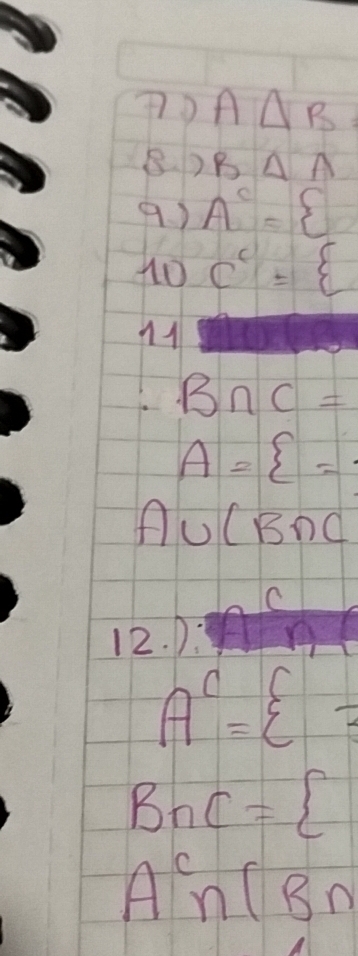 7) A Δ B
8) B Δ A
9) Aᶜ = {
10 Cᶜ = {
11
B∩C =
A = { =
A∪(B∩C
12.): Aᶜ∩(
Aᶜ = {
B∩C = {
Aᶜ∩(B∩